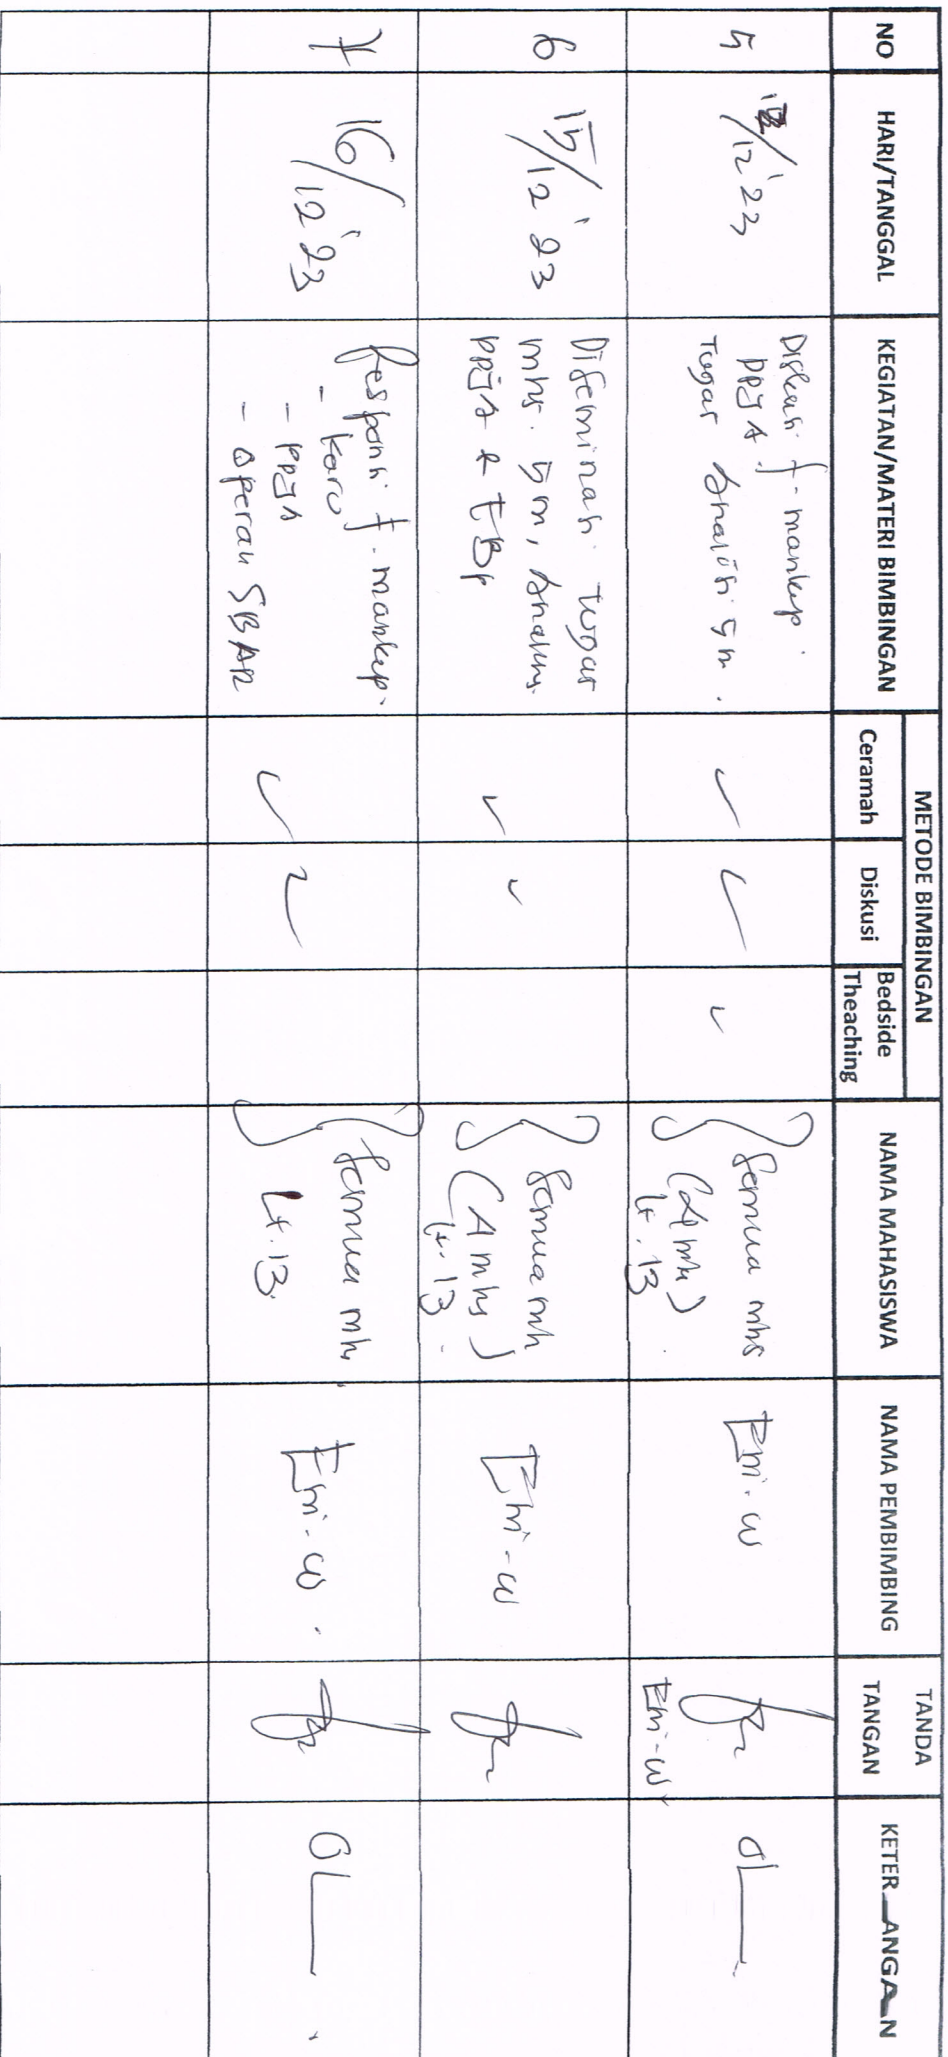 NO
HARI/TANGGAL
KEGIATAN/MATERI BIMBINGAN
METODE BIMBINGAN
Ceramah
Diskusi
Bedside
Theaching
NAMA MAHASISWA
NAMA PEMBIMBING
TANDA
TANGAN
KETERANGAN
5
/12'23
Diskusi f-mankep
PPJA
Tugas Analisis 5m.
✓
✓
✓
Semua mhs
(4 mhs)
Lt. 13
Emi-w
Emi-w
6
15/12'23
Diseminasi tugas
mhs. 5m, Analisis
PPJA & EBP
✓
✓
Semua mh
(4 mhs)
Lt. 13.
Emi-w
7
16/12'23
Responsi f-mankep.
- Karu
- PPJA
- Operan SBAR
✓
✓
Semua mhs
Lt. 13.
Emi-w.